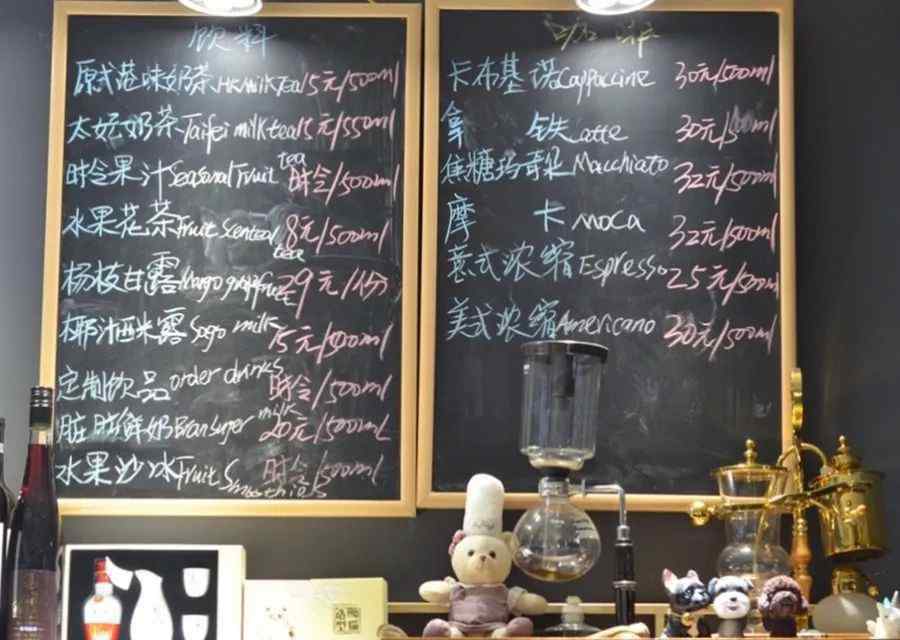 饮料
原式港味奶茶 HK Milk Tea 15元/500ml
太妃奶茶 Taifei milk tea 15元/550ml
时令果汁 Seasonal Fruit 时令/500ml
水果花茶 Fruit Scented tea 8元/500ml
杨枝甘露 Mango 29元/份
椰汁西米露 Sago milk 15元/500ml
定制饮品 order drinks 时令/500ml
脏脏鲜奶 milk 20元/500mL
水果沙冰 Fruit Smoothiels 时令/500ml
咖啡
卡布基诺 Cappuccine 30元/500ml
拿铁 Latte 30元/500ml
焦糖玛奇朵 Macchiato 32元/500ml
摩卡 moca 32元/500ml
意式浓缩 Espresso 25元/500ml
美式浓缩 Americano 30元/500ml